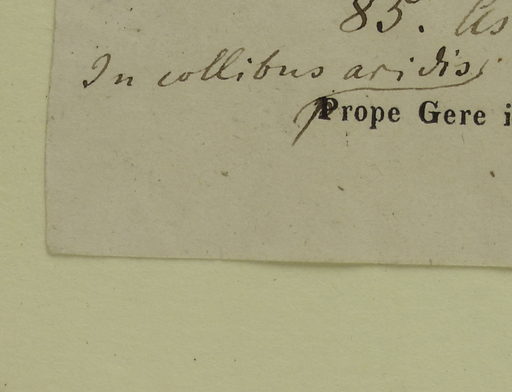 85. As
In collibus aridis;
Prope Gere i